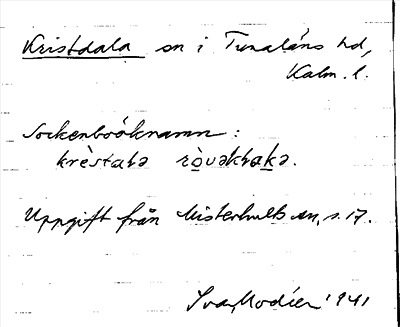 Kristdala sn i Tunaläns hd,
Kalm. l.
Sockenboöknamn:
krèstaba ròvəkbakə.
Uppgift från Misterhults sn, s. 17.
Ivar Modéer 1941